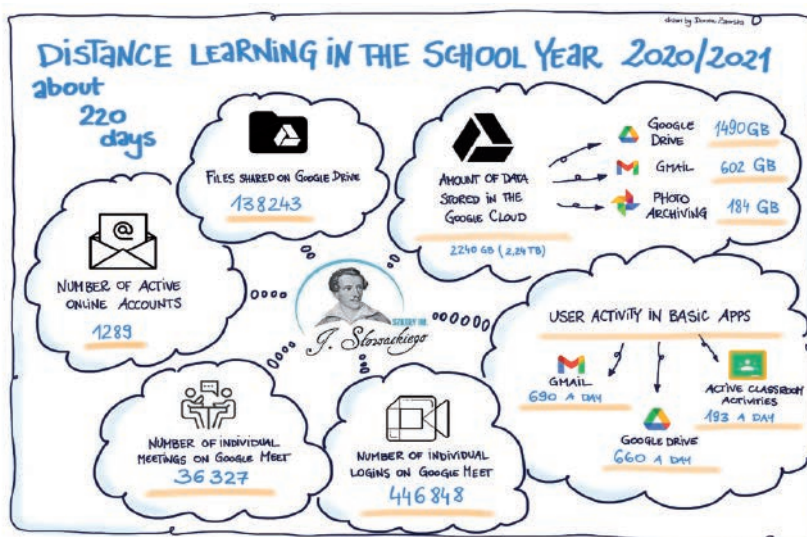 drawn by Dorota
DISTANCE LEARNING IN THE SCHOOL YEAR 2020/2021
about
220
days
FILES SHARED ON GOOGLE DRIVE
138243
AMOUNT OF DATA
STORED IN THE
GOOGLE CLOUD
2240 GB (2,24 TB)
GOOGLE
DRIVE
1490 GB
GMAIL
602 GB
PHOTO
ARCHIVING
184 GB
@
NUMBER OF ACTIVE
ONLINE ACCOUNTS
1289
SZKOŁY IM.
J. Słowackiego
USER ACTIVITY IN BASIC APPS
GMAIL
690 A DAY
GOOGLE DRIVE
660 A DAY
ACTIVE CLASSROOM
ACTIVITIES
193 A DAY
NUMBER OF INDIVIDUAL
MEETINGS ON GOOGLE MEET
36 327
NUMBER OF INDIVIDUAL
LOGINS ON GOOGLE MEET
446 848